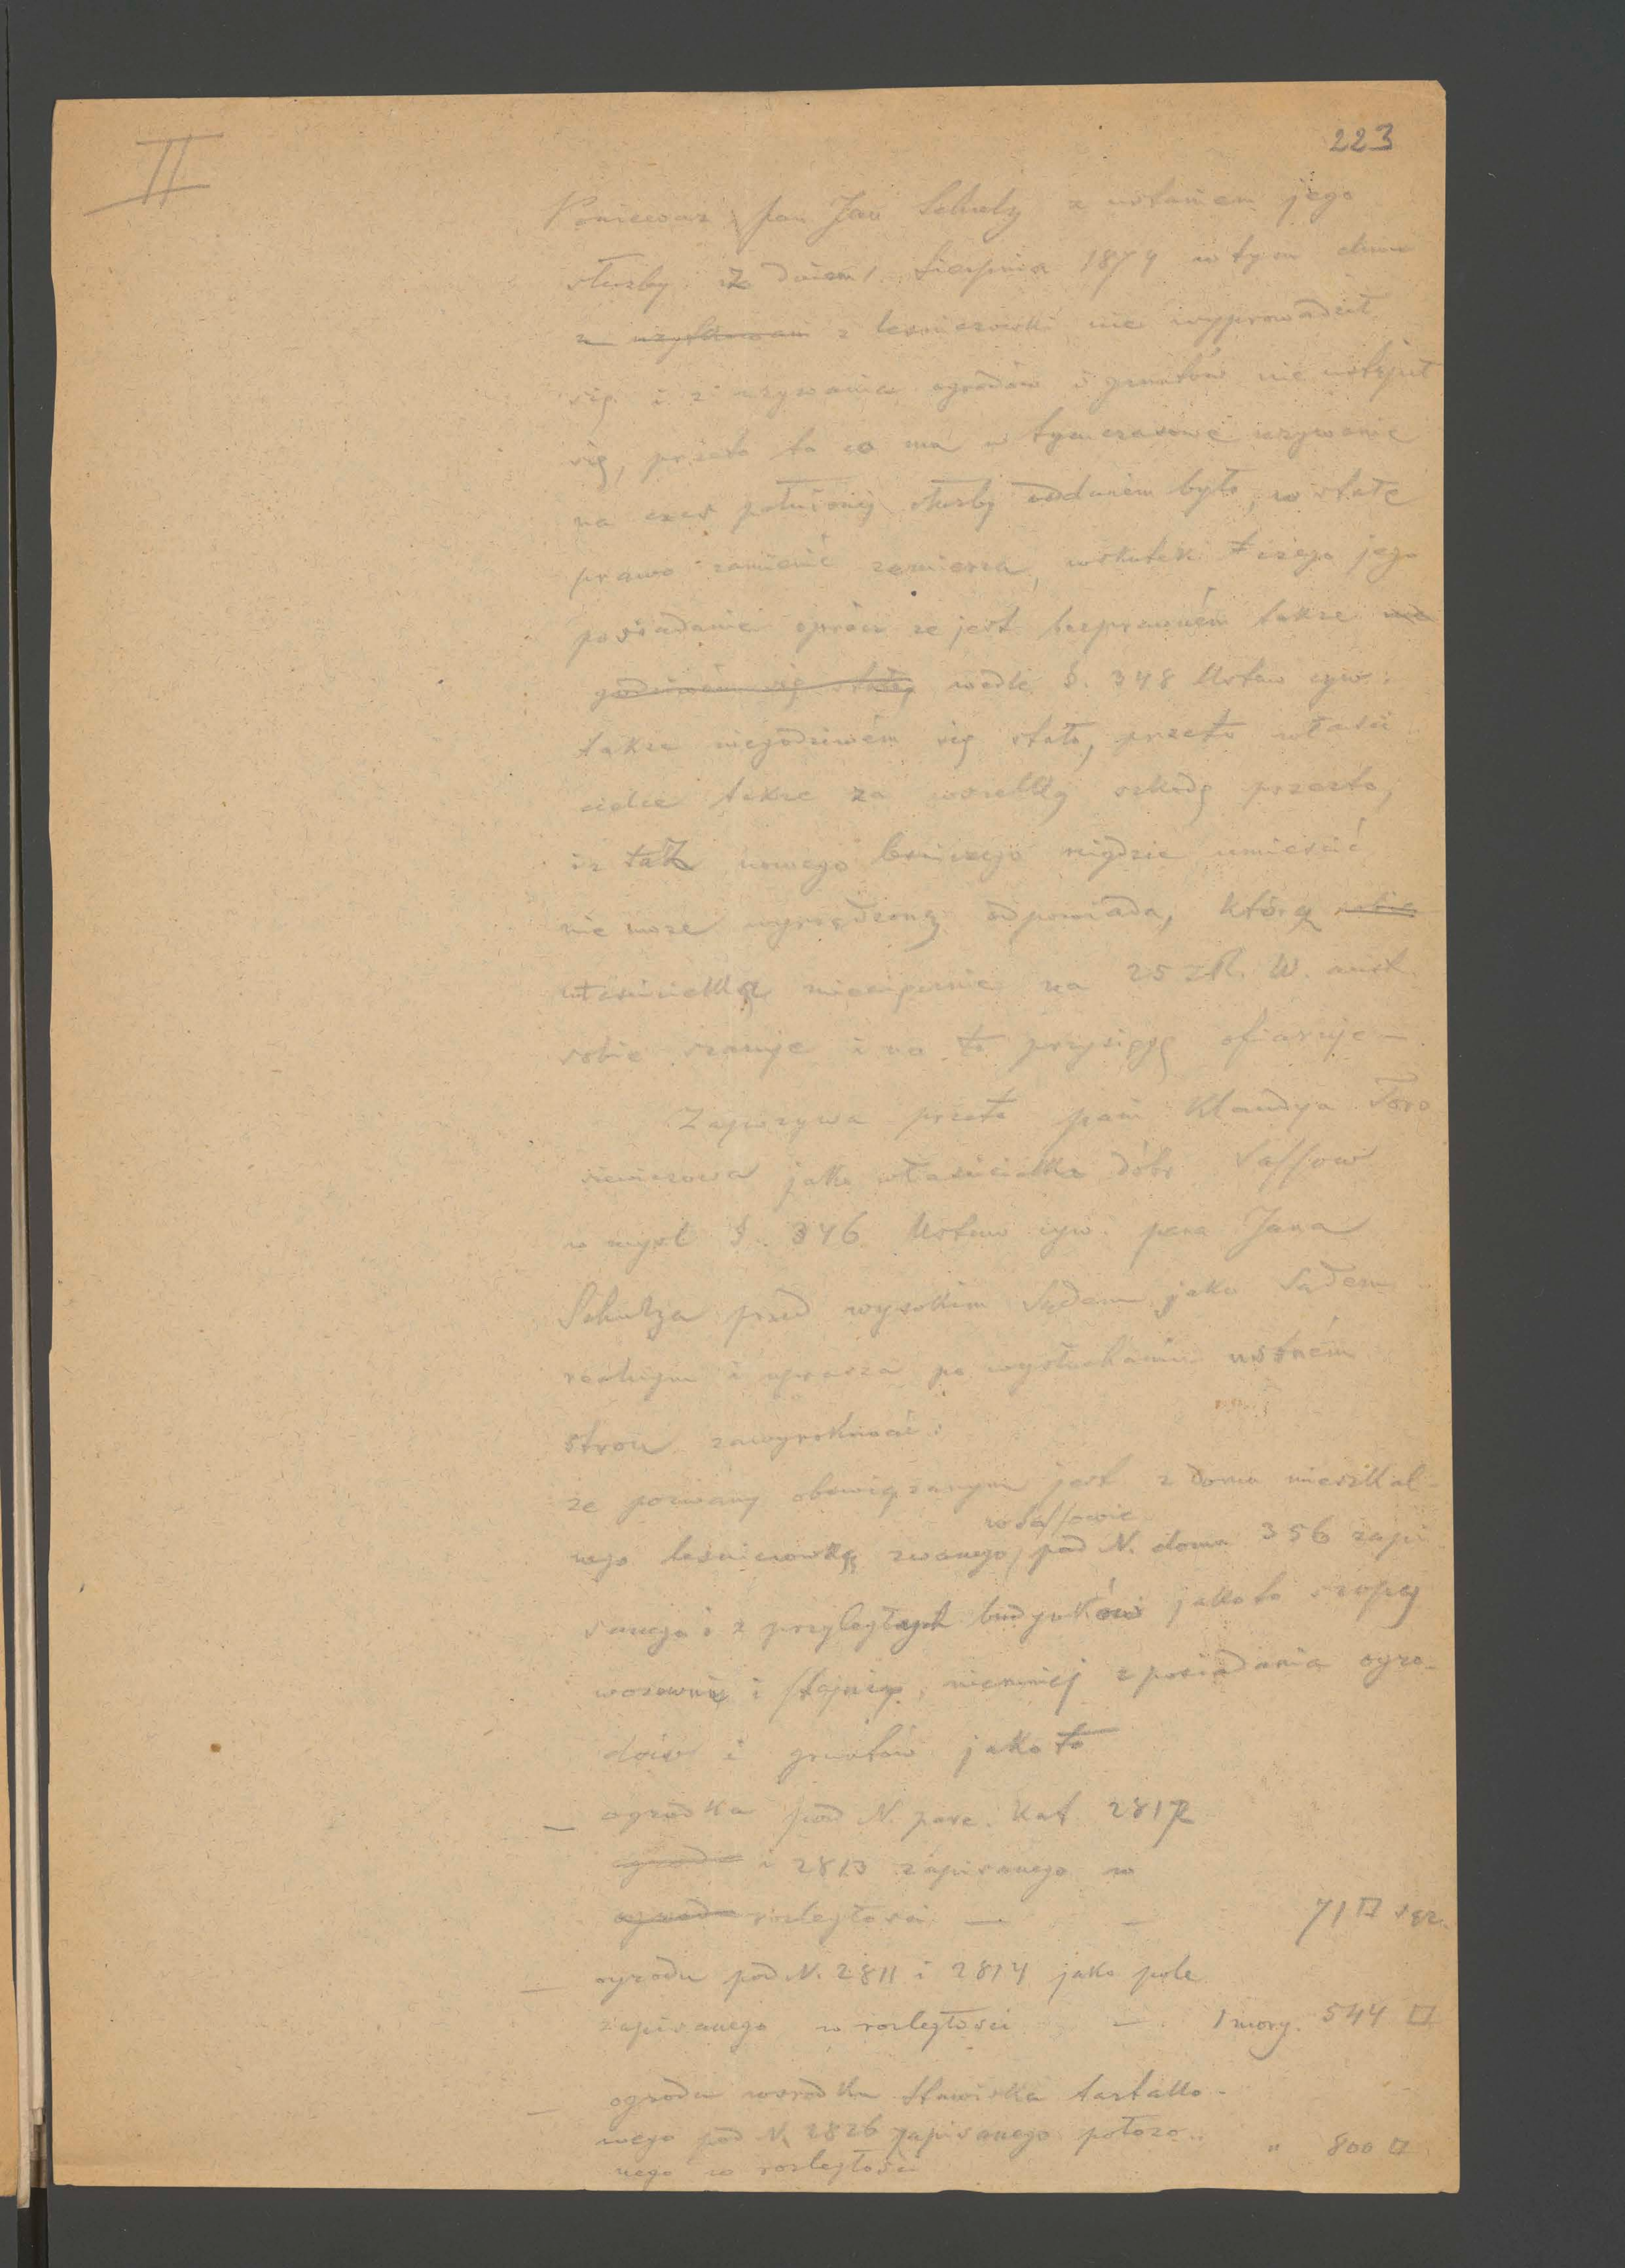 II
223
Poniewaz pan Jan Schulz z ustaniem jego
służby z dniem 1. Sierpnia 1874 w tym dniu
z z lesniczowki nie wyprowadził
się i z uzywania ogrodów i gruntów nie ustąpił
się, przeto to co ma w tymczasowe uzywanie
na czas pełnionej służby oddanem było, w stałe
prawo zamienić zamierza, wskutek czego jego
posiadanie oprócz ze jest bezprawném takze nie
godziwém się stało wedle §. 348 Ustaw cyw.
takze niegodziwém się stało, przeto właści
cielce takze za wszelką szkodę przezto,
iz taz nowego lesniczego nigdzie umieścić
nie moze wyrządzoną odpowiada, którą sobie
właścicielka na 25 zR. W. aust.
sobie szacuje i na to przysięgę ofiaruje —
Zapozywa przeto pani Klaudya Toro
siewiczowa jako właścicielka dóbr Sassow
w mysl §. 346 Ustaw cyw. pana Jana
Schulza przed wysokim Sądem jako Sądem
realnym i uprasza po wysłuchaniu ustném
stron zawyrokować:
ze pozwany obowiązanym jest z domu mieszkal-
w Sassowie
nego lesniczowką zwanego, pod N. domu 356 zapi
sanego i z przyległych budynków jakoto szopy
wozowni i stajni, niemniej z posiadania ogro-
dów i gruntów jakoto
— ogródka pod N. parc. kat. 2812
i 2813 zapisanego w
rozległości — — 71 □ sąz.
— ogrodu pod N. 2811 i 2814 jako pole
zapisanego w rozległości — 1 morg. 544 □
— ogrodu wsrodku stawiska tartako-
wego pod N. 2826 zapisanego połozo-
nego w rozległości " 800 □